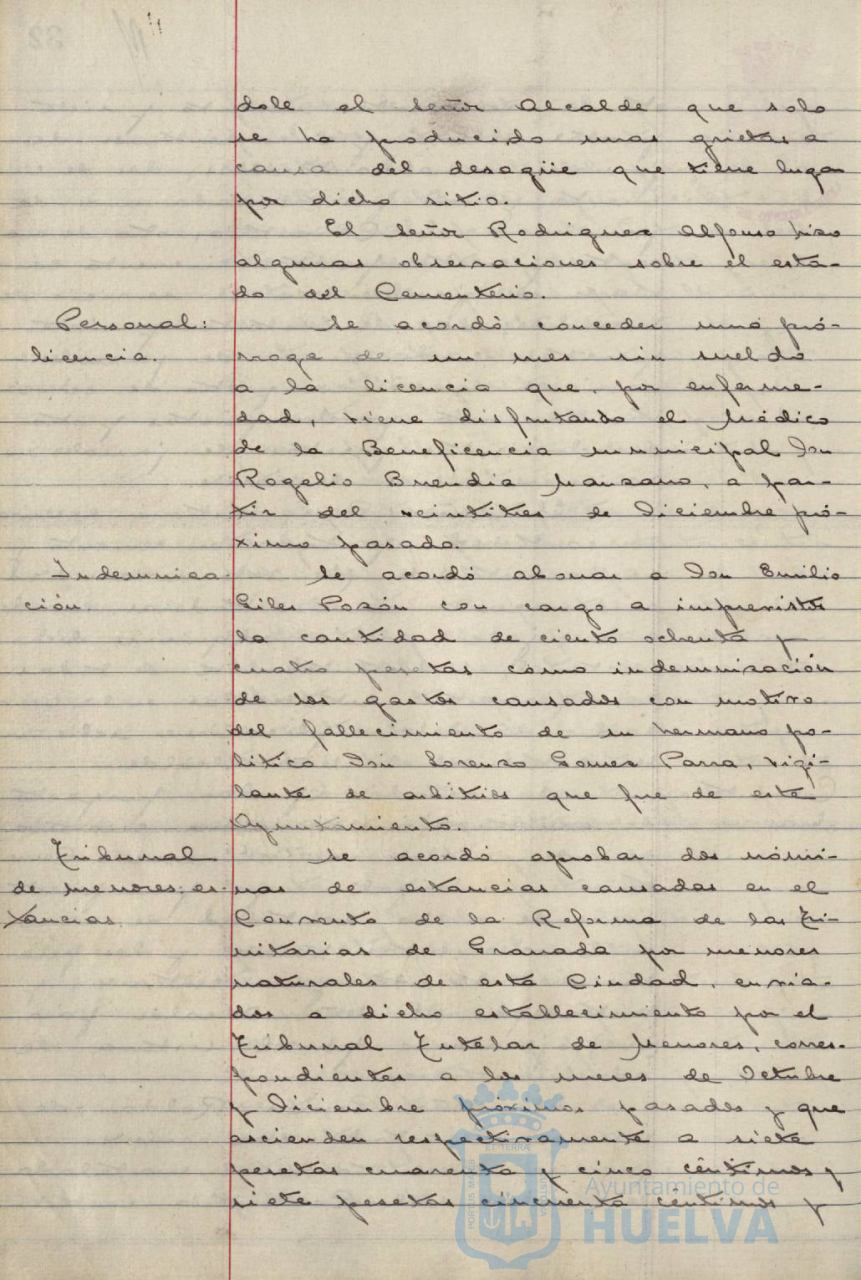 dole el Señor Alcalde que solo
se ha producido unas grietas a
causa del desagüe que tiene lugar
por dicho sitio.
El Señor Rodriguez Alfonso hizo
algunas observaciones sobre el esta-
do del Cementerio.
Personal:
licencia.
Se acordó conceder una pró-
rroga de un mes sin sueldo
a la licencia que, por enferme-
dad, viene disfrutando el Médico
de la Beneficencia municipal Don
Rogelio Buendia Manzano, a par-
tir del veintitres de Diciembre pró-
ximo pasado.
Indemniza
ción.
Se acordó abonar a Don Emilio
Giles Posón con cargo a imprevistos
la cantidad de ciento ochenta y
cuatro pesetas como indemnización
de los gastos causados con motivo
del fallecimiento de su hermano po-
litico Don Lorenzo Gomez Parra, vigi-
lante de arbitrios que fue de este
Ayuntamiento.
Tribunal
de menores; es-
tancias.
Se acordó aprobar dos nómi-
nas de estancias causadas en el
Convento de la Reforma de las Tri-
nitarias de Granada por menores
naturales de esta Ciudad, envia-
dos a dicho establecimiento por el
Tribunal Tutelar de Menores, corres-
pondientes a los meses de Octubre
y Diciembre próximos pasados y que
ascienden respectivamente a siete
pesetas cuarenta y cinco céntimos y
siete pesetas cincuenta céntimos y
Ayuntamiento de
HUELVA